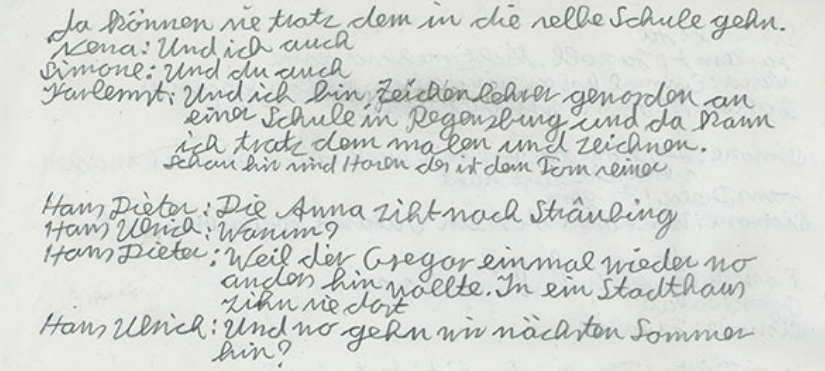 da können sie trotz dem in die selbe Schule gehn.
Xena: Und ich auch
Simone: Und du auch
Karlernst: Und ich bin Zeichenlehrer geworden an
einer Schule in Regensburg und da kann
ich trotz dem malen und zeichnen.
Schau hir sind Haren der ist dem Tom seiner
Hans Dieter: Die Anna ziht nach Straubing
Hans Ulrich: Warum?
Hans Dieter: Weil der Gregor einmal wieder wo
anders hin wollte. In ein Stadthaus
zihn sie dort
Hans Ulrich: Und wo gehn wir nächsten Sommer
hin?